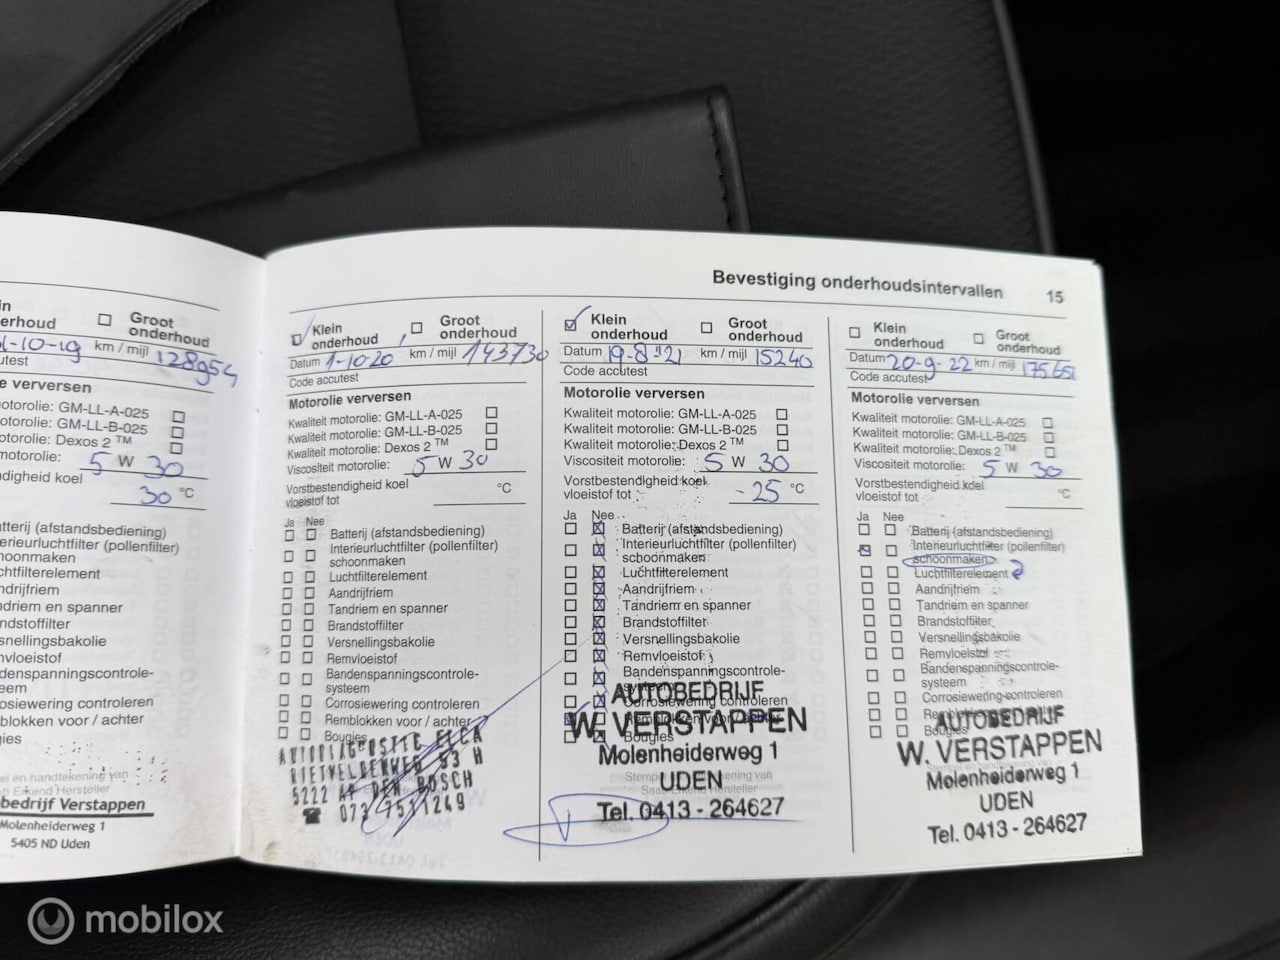 Bevestiging onderhoudsintervallen 15
erhoud
Groot
onderhoud
-10-19 km / mijl 128954
cutest
e verversen
otorolie: GM-LL-A-025
otorolie: GM-LL-B-025
otorolie: Dexos 2 TM
motorolie: 5 W 30
ndigheid koel
30 °C
atterij (afstandsbediening)
erieurluchtfilter (pollenfilter)
hoonmaken
chtfilterelement
ndrijfriem
ndriem en spanner
ndstoffilter
snellingsbakolie
mvloeistof
ndenspanningscontrole-
eem
osiewering controleren
blokken voor / achter
gies
el en handtekening van
Erkend Hersteller
bedrijf Verstappen
Molenheiderweg 1
5405 ND Uden
Klein
onderhoud
Groot
onderhoud
Datum 1-10-20 km / mijl 143730
Code accutest
Motorolie verversen
Kwaliteit motorolie: GM-LL-A-025
Kwaliteit motorolie: GM-LL-B-025
Kwaliteit motorolie: Dexos 2 TM
Viscositeit motorolie: 5 W 30
Vorstbestendigheid koel
vloeistof tot °C
Ja Nee
Batterij (afstandsbediening)
Interieurluchtfilter (pollenfilter)
schoonmaken
Luchtfilterelement
Aandrijfriem
Tandriem en spanner
Brandstoffilter
Versnellingsbakolie
Remvloeistof
Bandenspanningscontrole-
systeem
Corrosiewering controleren
Remblokken voor / achter
Bougies
AUTODIAGNOSTIC ELCA
RIETVELDENWEG 53 H
5222 AP DEN BOSCH
☎ 073 7511249
Klein
onderhoud
Groot
onderhoud
Datum 19-8-'21 km / mijl 15240
Code accutest
Motorolie verversen
Kwaliteit motorolie: GM-LL-A-025
Kwaliteit motorolie: GM-LL-B-025
Kwaliteit motorolie: Dexos 2 TM
Viscositeit motorolie: 5 W 30
Vorstbestendigheid koel
vloeistof tot -25 °C
Ja Nee
Batterij (afstandsbediening)
Interieurluchtfilter (pollenfilter)
schoonmaken
Luchtfilterelement
Aandrijfriem
Tandriem en spanner
Brandstoffilter
Versnellingsbakolie
Remvloeistof
Bandenspanningscontrole-
systeem
Corrosiewering controleren
Remblokken voor / achter
Bougies
AUTOBEDRIJF
W. VERSTAPPEN
Molenheiderweg 1
UDEN
Tel. 0413 - 264627
Klein
onderhoud
Groot
onderhoud
Datum 20-9-22 km / mijl 175651
Code accutest
Motorolie verversen
Kwaliteit motorolie: GM-LL-A-025
Kwaliteit motorolie: GM-LL-B-025
Kwaliteit motorolie: Dexos 2 TM
Viscositeit motorolie: 5 W 30
Vorstbestendigheid koel
vloeistof tot °C
Ja Nee
Batterij (afstandsbediening)
Interieurluchtfilter (pollenfilter)
schoonmaken
Luchtfilterelement
Aandrijfriem
Tandriem en spanner
Brandstoffilter
Versnellingsbakolie
Remvloeistof
Bandenspanningscontrole-
systeem
Corrosiewering controleren
AUTOBEDRIJF
W. VERSTAPPEN
Molenheiderweg 1
UDEN
Tel. 0413 - 264627
mobilox